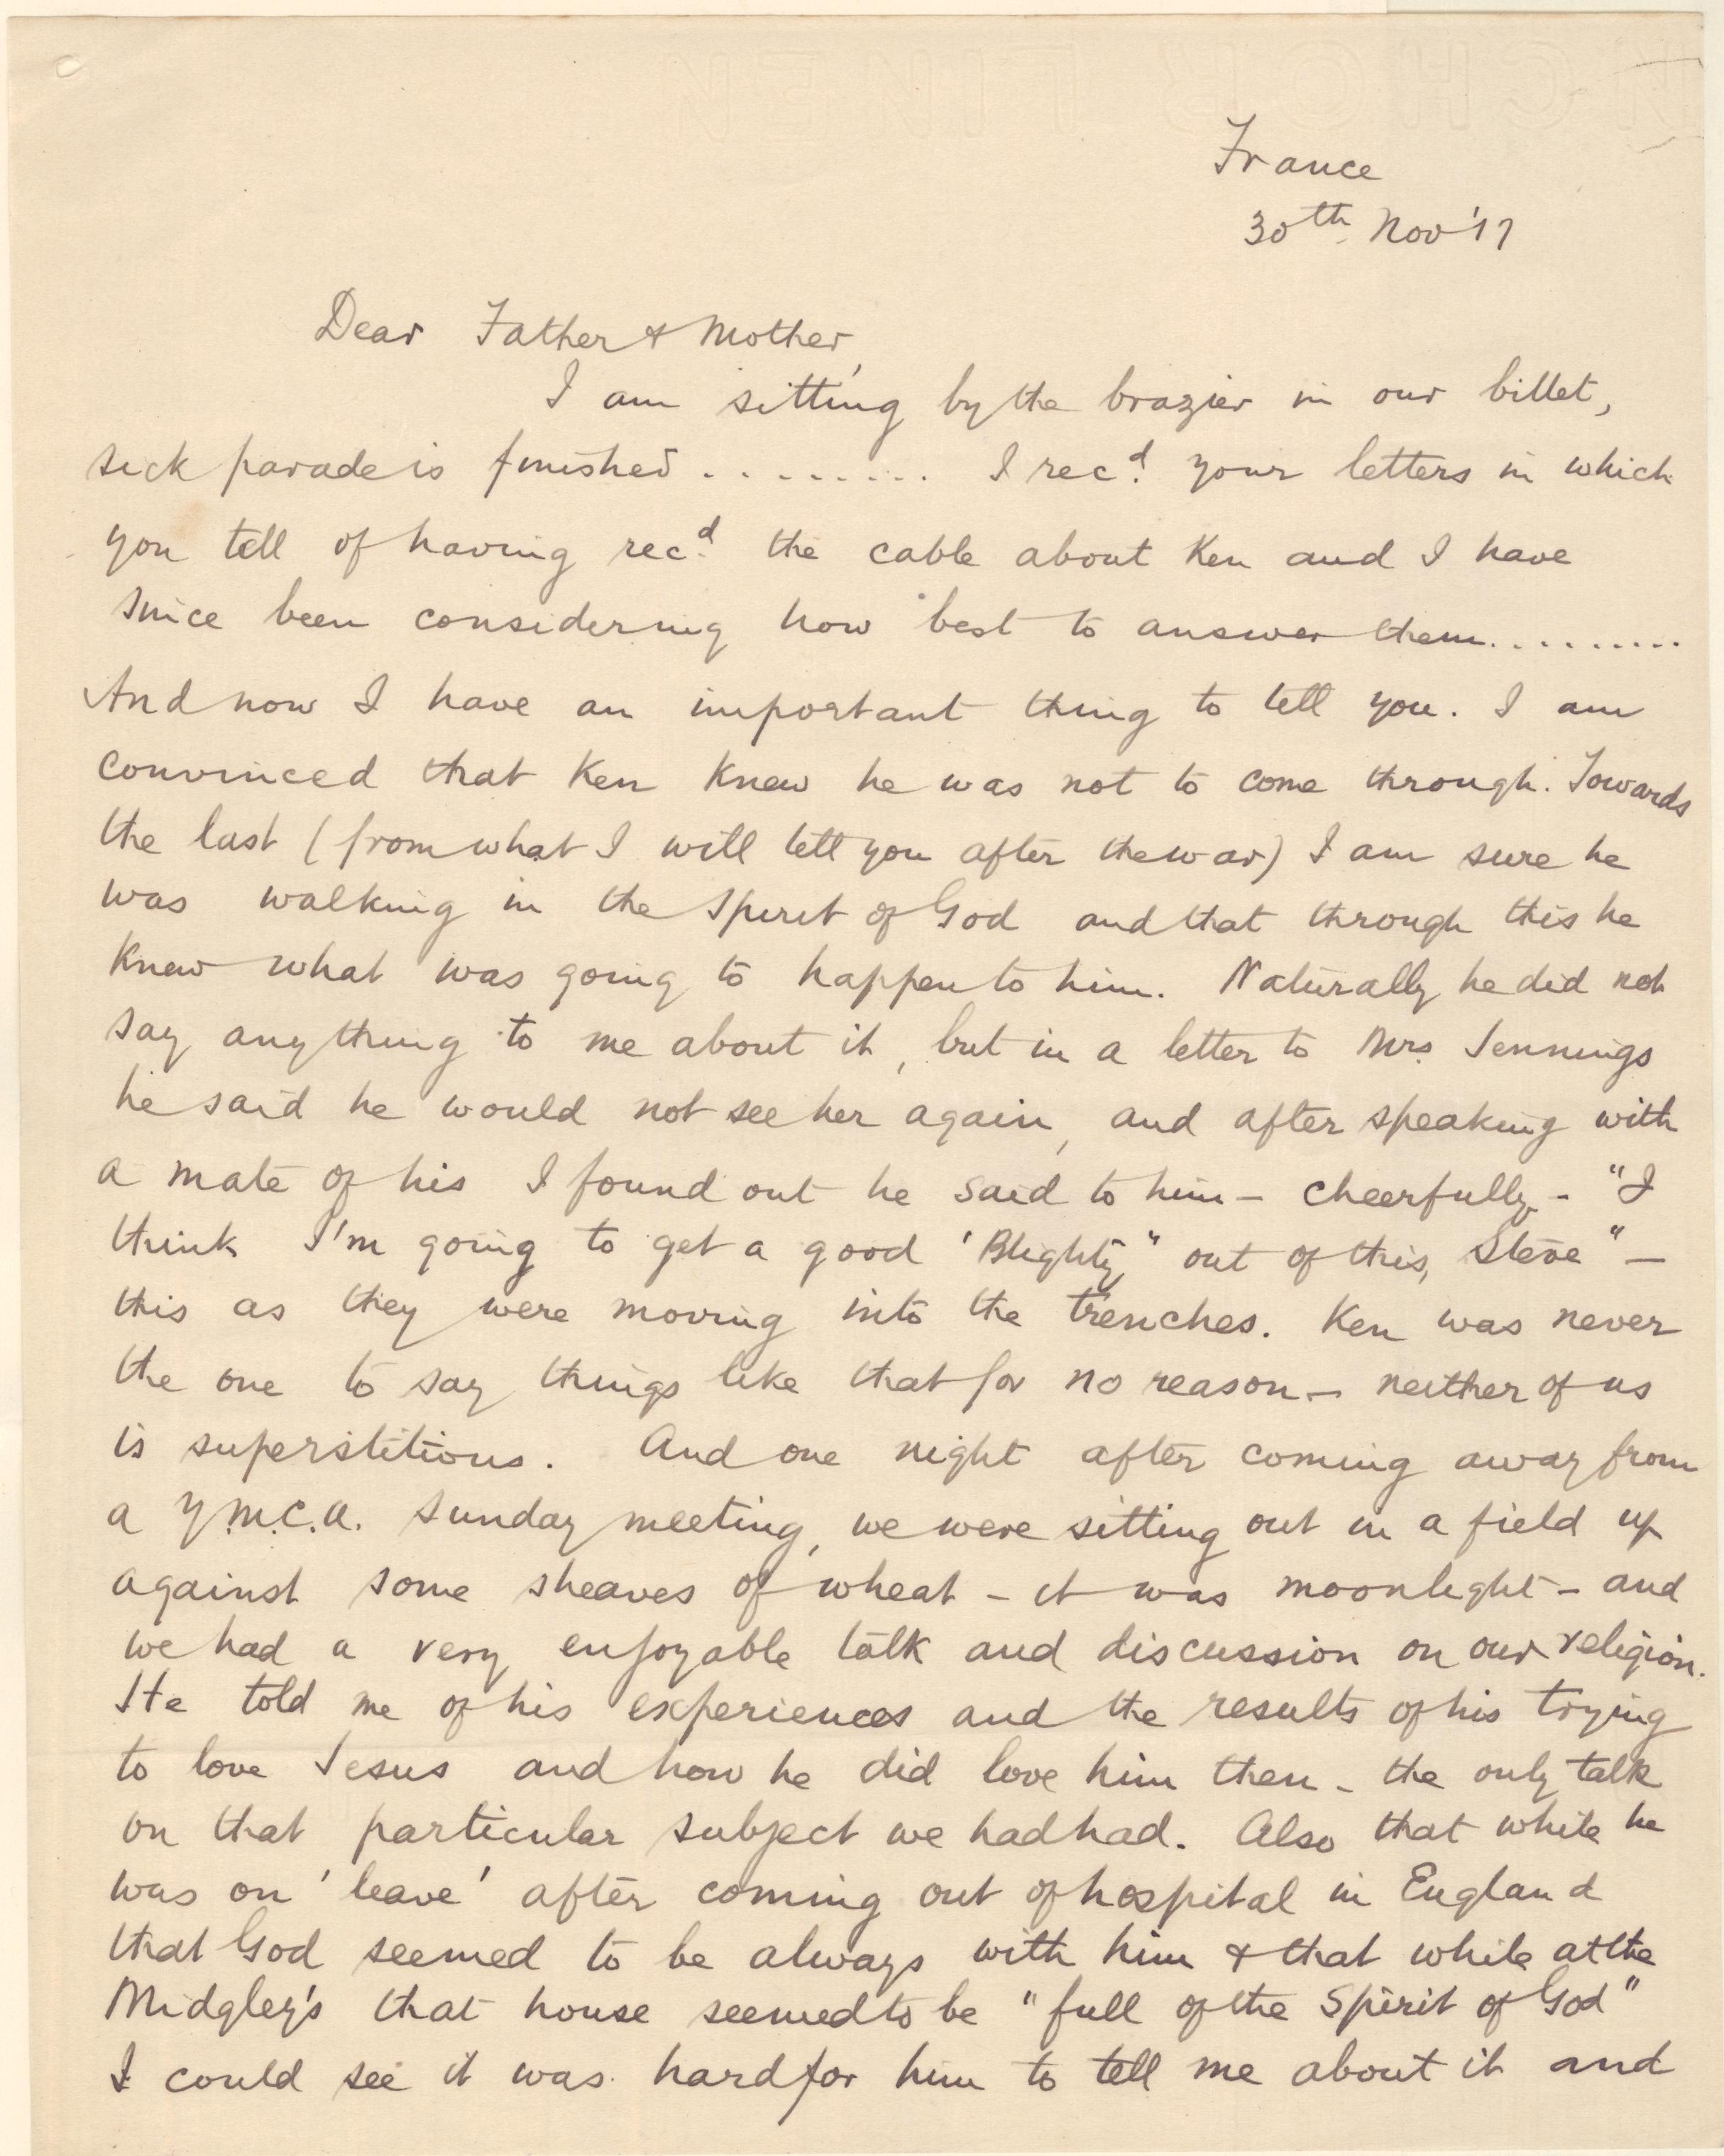 France
30th Nov '17
Dear Father & Mother,
I am sitting by the brazier in our billet,
sick parade is finished ......... I recd. your letters in which
you tell of having recd. the cable about Ken and I have
since been considering how best to answer them.........
And now I have an important thing to tell you. I am
convinced that Ken knew he was not to come through. Towards
the last (from what I will tell you after the war) I am sure he
was walking in the Spirit of God and that through this he
knew what was going to happen to him. Naturally he did not
say anything to me about it, but in a letter to Mrs. Jennings
he said he would not see her again, and after speaking with
a mate of his I found out he said to him - cheerfully - "I
think I'm going to get a good 'Blighty" out of this, Steve" -
this as they were moving into the trenches. Ken was never
the one to say things like that for no reason - neither of us
is superstitious. And one night after coming away from
a Y.M.C.A. Sunday meeting, we were sitting out in a field up
against some sheaves of wheat - it was moonlight - and
we had a very enjoyable talk and discussion on our religion.
He told me of his experiences and the results of his trying
to love Jesus and how he did love him then - the only talk
on that particular subject we had had. Also that while he
was on 'leave' after coming out of hospital in England
that God seemed to be always with him & that while at the
Midgley's that house seemed to be "full of the Spirit of God"
I could see it was hard for him to tell me about it and